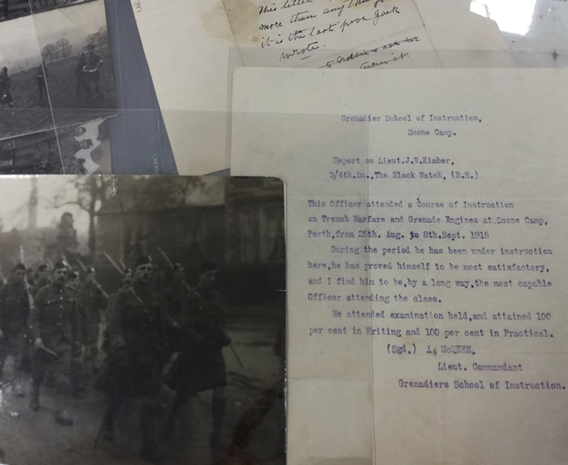 This letter
more than any
it is the last poor Jack
wrote.
Grenadier School of Instruction,
Doone Camp.
Report on Lieut.J.W.Kimber,
3/4th.Bn.,The Black Watch, (R.H.)
This Officer attended a Course of Instruction
on Trench Warfare and Grenade Engines at Doone Camp,
Perth,from 25th. Aug. to 8th.Sept. 1915
During the period he has been under instruction
here,he has proved himself to be most satisfactory,
and I find him to be,by a long way,the most capable
Officer attending the class.
He attended examination held,and attained 100
per cent in Writing and 100 per cent in Practical.
(Sgd,) A. McQUEEN,
Lieut. Commandant
Grenadiers School of Instruction.